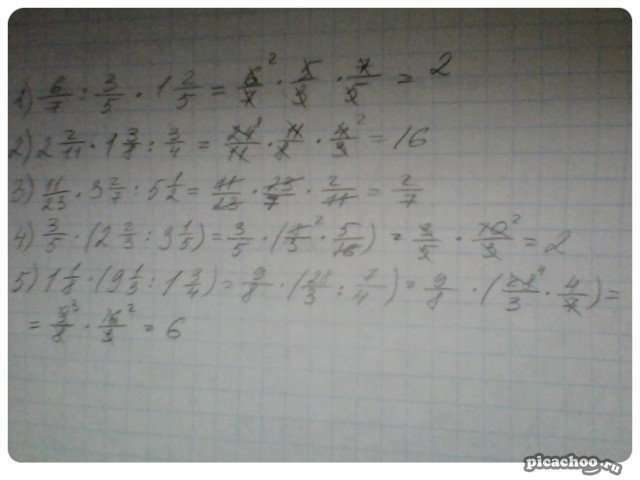 1) 6/7 : 3/5 · 1 2/5 = 6/7 · 5/3 · 7/5 = 2
2) 2 2/11 · 1 3/8 : 3/4 = 24/11 · 11/8 · 4/3 = 16
3) 11/23 · 3 2/7 : 5 1/2 = 11/23 · 23/7 · 2/11 = 2/7
4) 3/5 · (2 2/3 : 3 1/5) = 3/5 · ( · 5/16) = · 10/3 = 2
5) 1 1/8 · (9 1/3 : 1 3/4) = 9/8 · (28/3 : 7/4) = 9/8 · (28/3 · 4/7) =
= 9/8 · 16/3 = 6
picachoo.ru